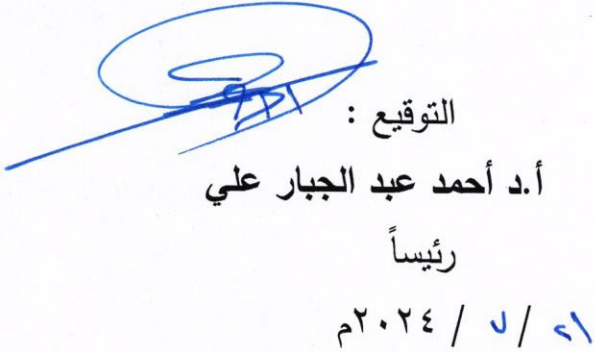 التوقيع :
أ.د أحمد عبد الجبار علي
رئيساً
٢١ / ٧ / ٢٠٢٤م